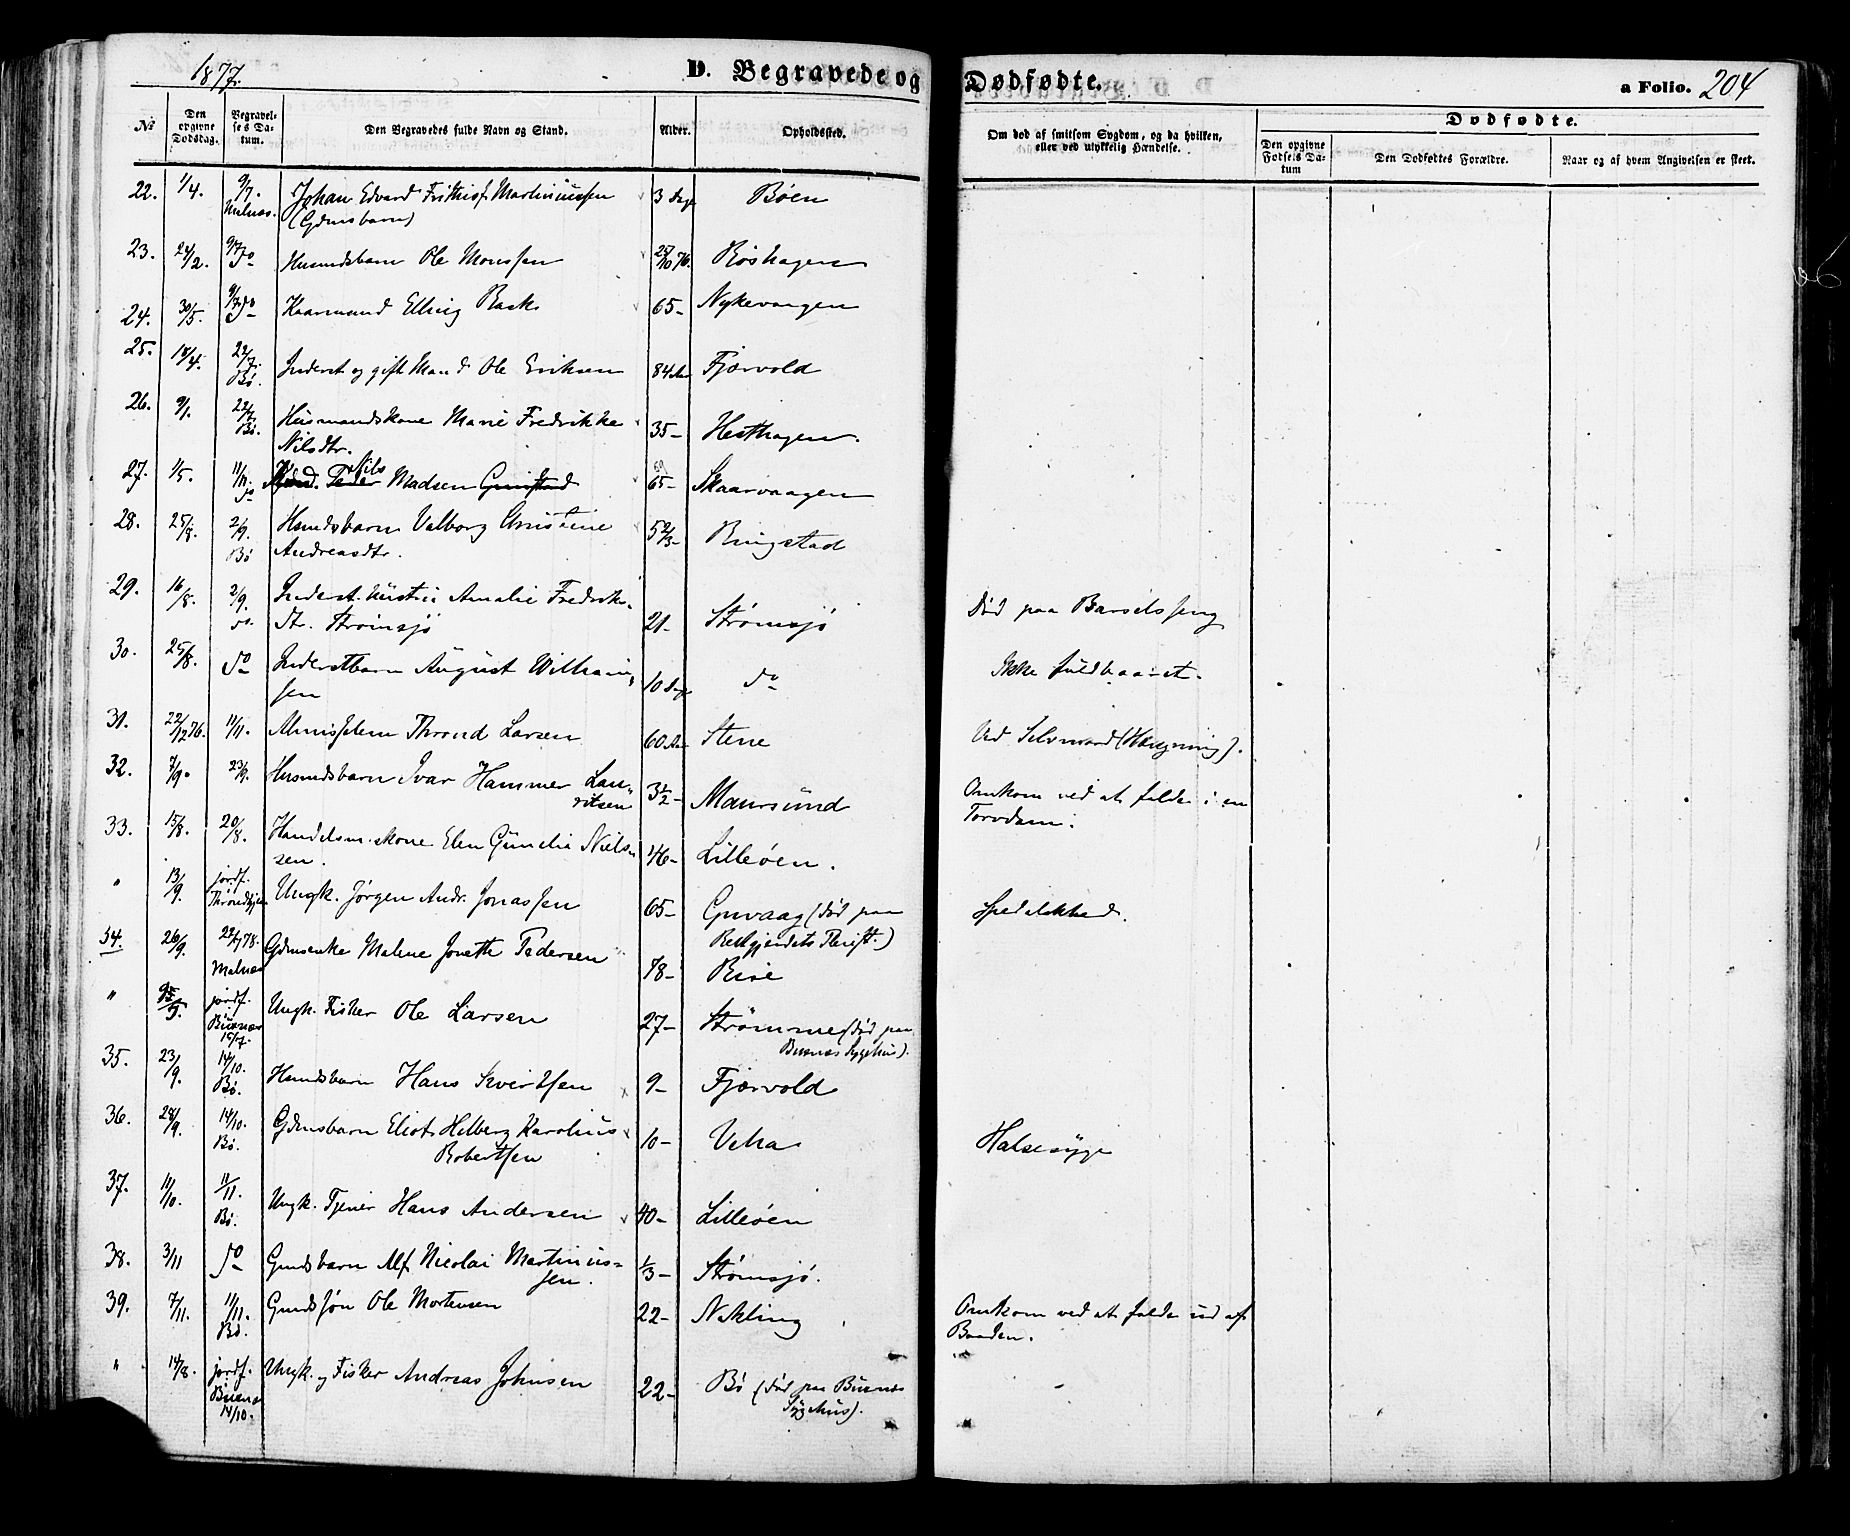 1877.
D. Begravede og Dødfødte.
a Folio. 204
№
Den opgivne Dødsdag.
Begravelses Datum.
Den Begravedes fulde Navn og Stand.
Alder.
Opholdssted.
Om død af smitsom Sygdom, og da hvilken, eller ved ulykkelig Hændelse.
Dødfødte.
Den opgivne Fødsels Datum
Den Dødfødtes Forældre.
Naar og af hvem Angivelsen er skeet.
22. 1/4. 9/7. Malnæs. Johan Edvard Frithiof Martinussen 3 Dage Bøen
(Gdmsbarn)
23. 24/2. 9/7 do Husmdsbarn Ole Monssen 25/10 76. Røshagen
24. 30/5. 9/7 do Kaarmand Elling Bask 65- Nykevaagen
25. 18/4. 22/7. Bø. Inderst og gift Mand Ole Eriksen 84 Aar Fjærvold
26. 9/1. 22/7. Bø. Husmandskone Marie Fredrikke 35- Hesthagen.
Nilsdtr.
27. 1/5. 11/11. do Nils Madsen 65- Skaarvaagen
28. 25/8. 2/9. Bø Husmdsbarn Valborg Christine 5 2/3- Ringstad
Andreasdtr.
29. 16/8. 2/9. do. Inderst. Hustru Amalie Fredriks-
dtr. Strømsjø 21- Strømsjø Død paa Barselsseng
30. 25/8. do Inderstbarn August Wilham-
sen 10 Dage do Ikke fuldbaaret.
31. 22/12 76. 11/11. Almisselem Thrond Larsen 60 Aar Stene Ved Selvmord (Hængning).
32. 7/9. 23/9. Husmdsbarn Ivar Hammer Lau-
ritsen 3 1/2- Maursund Omkom ved at falde i en
Torvdam.
33. 15/8. 20/8. Handelsm. kone Elen Gunelie Niels-
sen. 46- Lilleøen.
" 13/9. jordf. Throndhjem Ungk. Jørgen Andr. Jonassen 65- Guvaag (død paa Spedalskhed.
Reitgjerdets Stift.)
34. 26/9. 22/7 78. Malnæs Gdmsenke Malene Jonette Pedersen 78- Risø
" 5. jordf. i Buxnæs 15/7. Ungk. Fisker Ole Larsen 27- Strømme (død paa
Buxnæs Sygehus).
35. 23/9. 14/10. Bø. Husmdsbarn Hans Sivertsen 9- Fjærvold
36. 28/9. 14/10. Bø. Gdmsbarn Eliot Helberg Karolius 10- Vea Halssyge
Robertsen
37. 11/10. 11/11. Bø. Ungk. Tjener Hans Andersen 40- Lilleøen
38. 3/11 do Gmdsbarn Alf Nicolai Martinus-
sen. 1/3- Strømsjø.
39. 7/11. 11/11. Bø. Gmdssøn Ole Mortensen 22- Nykling Omkom ved at falde ud af
Baaden.
" 14/8. jordf. i Buxnæs 14/10. Ungk. og Fisker Andreas Johnsen 22- Bø (død paa Buxnæs
Sygehus).